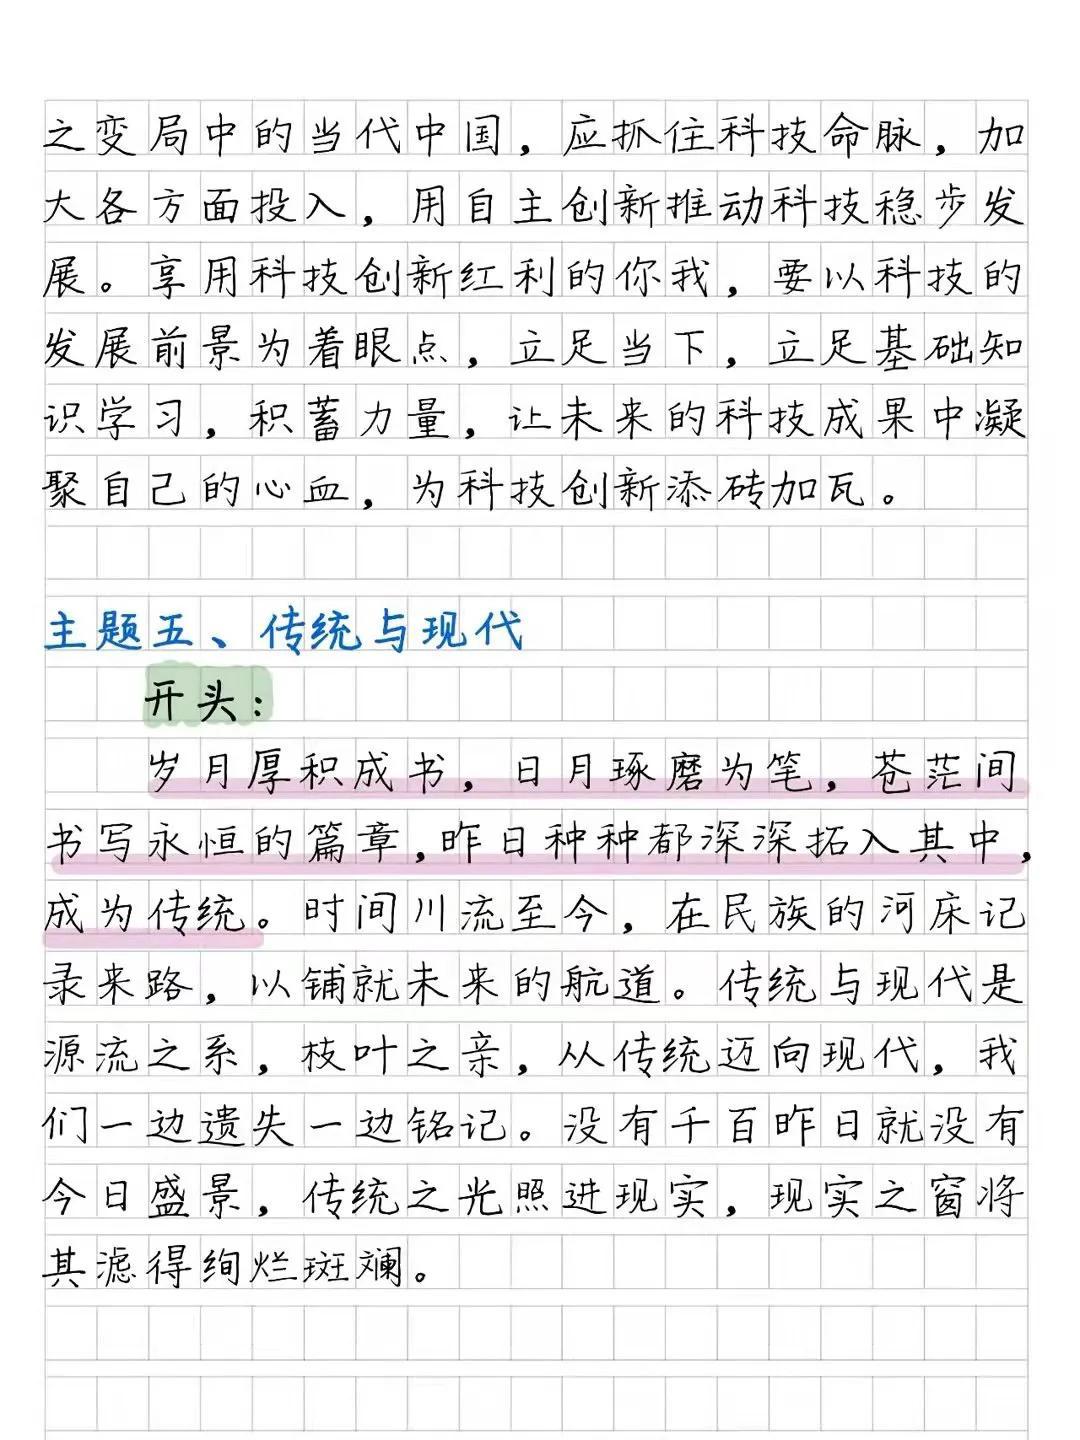 之变局中的当代中国，应抓住科技命脉，加
大各方面投入，用自主创新推动科技稳步发
展。享用科技创新红利的你我，要以科技的
发展前景为着眼点，立足当下，立足基础知
识学习，积蓄力量，让未来的科技成果中凝
聚自己的心血，为科技创新添砖加瓦。
主题五、传统与现代
开头：
岁月厚积成书，日月琢磨为笔，苍茫间
书写永恒的篇章，昨日种种都深深拓入其中，
成为传统。时间川流至今，在民族的河床记
录来路，以铺就未来的航道。传统与现代是
源流之系，枝叶之亲，从传统迈向现代，我
们一边遗失一边铭记。没有千百昨日就没有
今日盛景，传统之光照进现实，现实之窗将
其滤得绚烂斑斓。